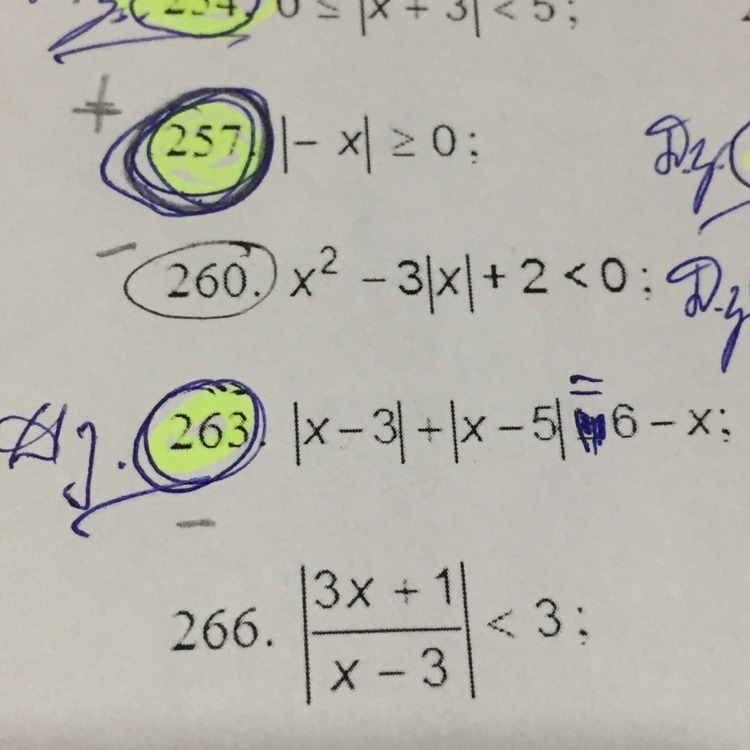 254. 0 ≤ |x + 3| < 5;
+
257. |– x| ≥ 0;
–
260. x² – 3|x| + 2 < 0;
263. |x – 3| + |x – 5| = 6 – x;
–
266. |(3x + 1)/(x – 3)| < 3;